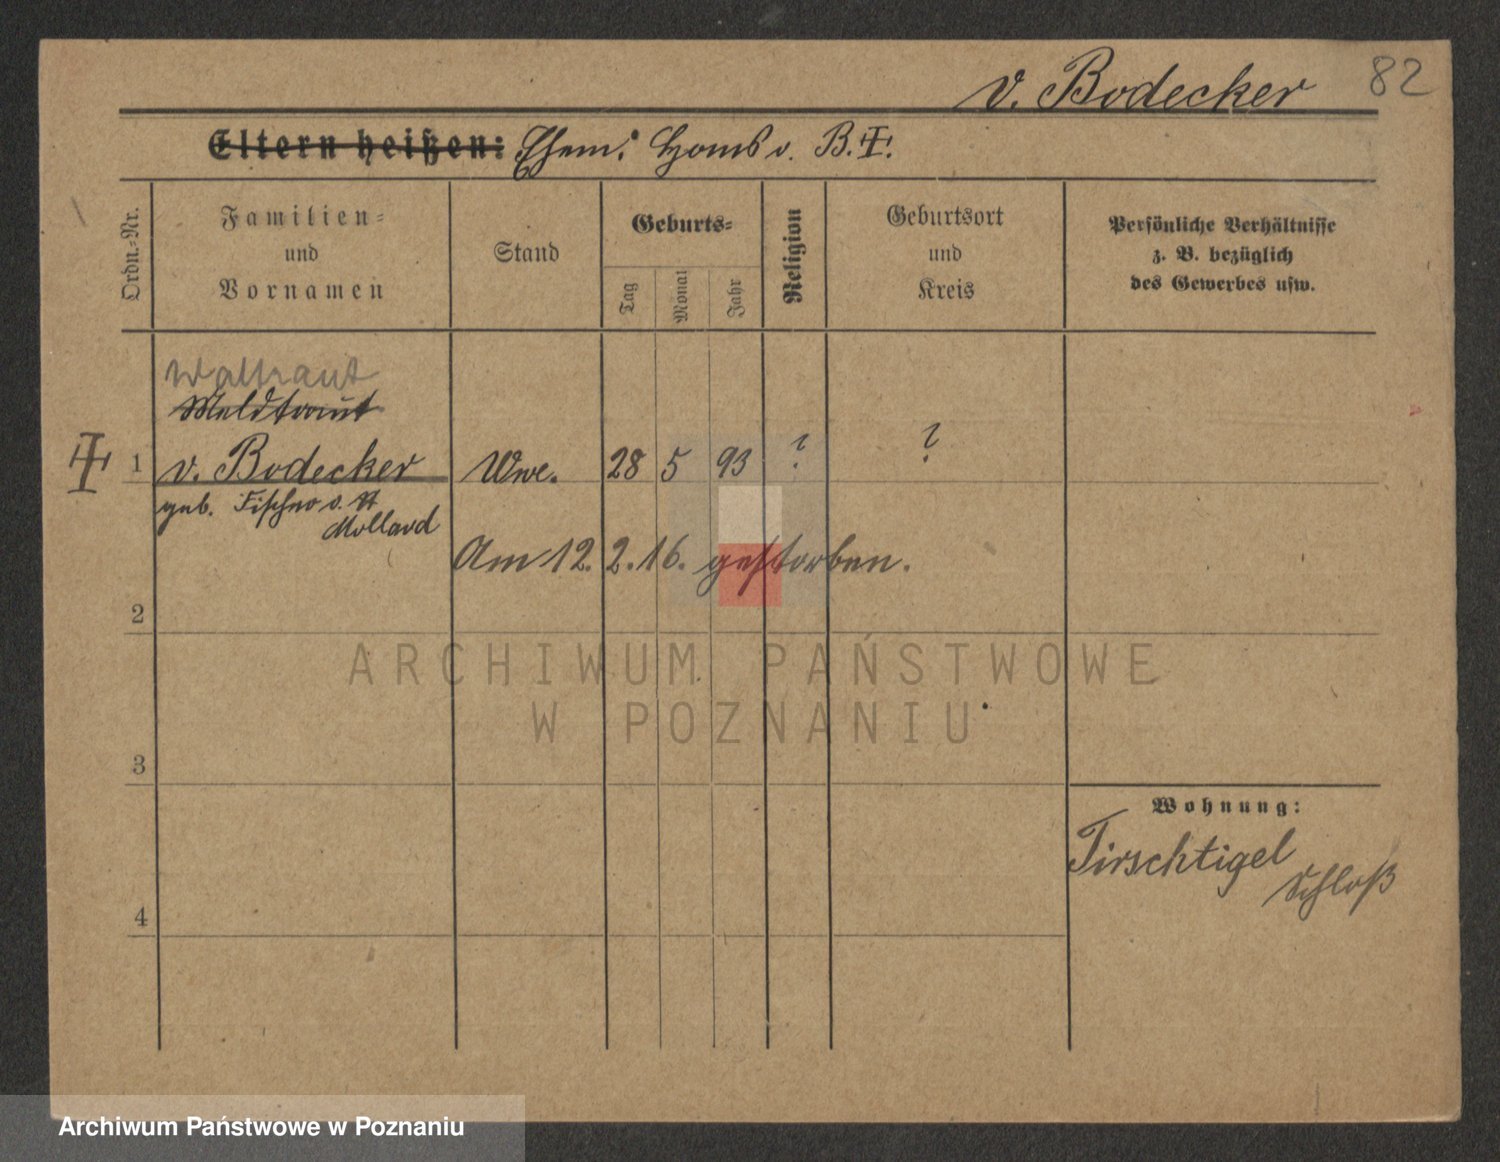 v. Bodecker 82
Eltern heißen: Ehem: Hans v. B.
Ordn.-Nr.
Familien-
und
Vornamen
Stand
Geburts-
Tag
Monat
Jahr
Religion
Geburtsort
und
Kreis
Persönliche Verhältnisse
z. B. bezüglich
des Gewerbes usw.
Waltraut
1 v. Bodecker Wwe. 28 5 93 ? ?
geb. v.
Mollard
Am 12. 2. 16. gestorben.
2
ARCHIWUM PAŃSTWOWE
W POZNANIU
3
Wohnung:
Tirschtigel
Schloß
4
Archiwum Państwowe w Poznaniu